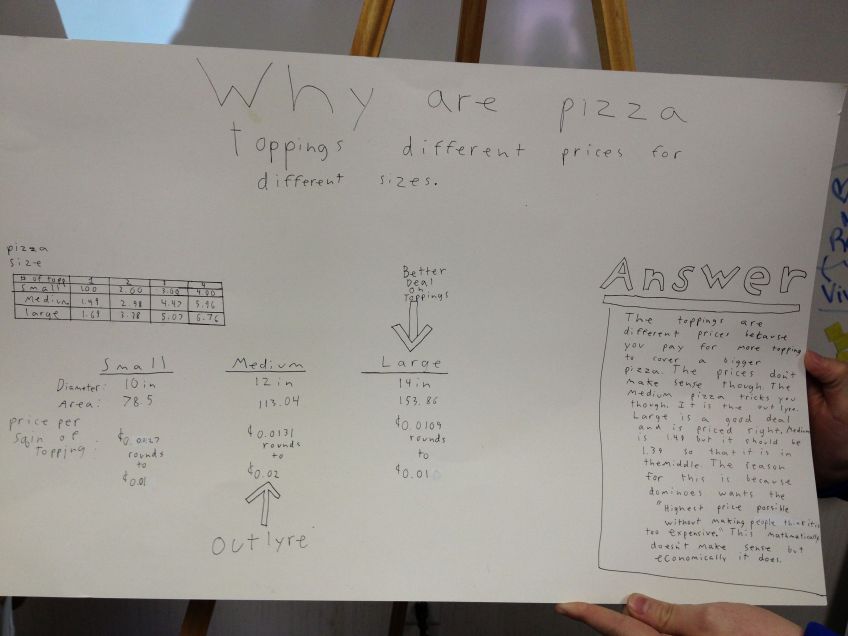 Why are pizza
toppings different prices for
different sizes.
pizza
size
# of topp 1 2 3 4
Small 1.00 2.00 3.00 4.00
Medium 1.49 2.98 4.47 5.96
Large 1.69 3.38 5.07 6.76
Better
Deal
on
Toppings
Small Medium Large
Diameter: 10in 12in 14in
Area: 78.5 113.04 153.86
price per
sqin of
topping:
$0.0127 $0.0131 $0.0109
rounds rounds rounds
to to to
$0.01 $0.02 $0.01
outlyre
Answer
The toppings are
different prices because
you pay for more topping
to cover a bigger
pizza. The prices don't
make sense though. The
Medium pizza tricks you
though. It is the outlyre.
Large is a good deal
and is priced right. Medium
is 1.49 but it should be
1.39 so that it is in
themiddle. The reason
for this is because
dominoes wants the
"Highest price possible
without making people think it is
too expensive." This mathmatically
doesn't make sense but
economically it does.